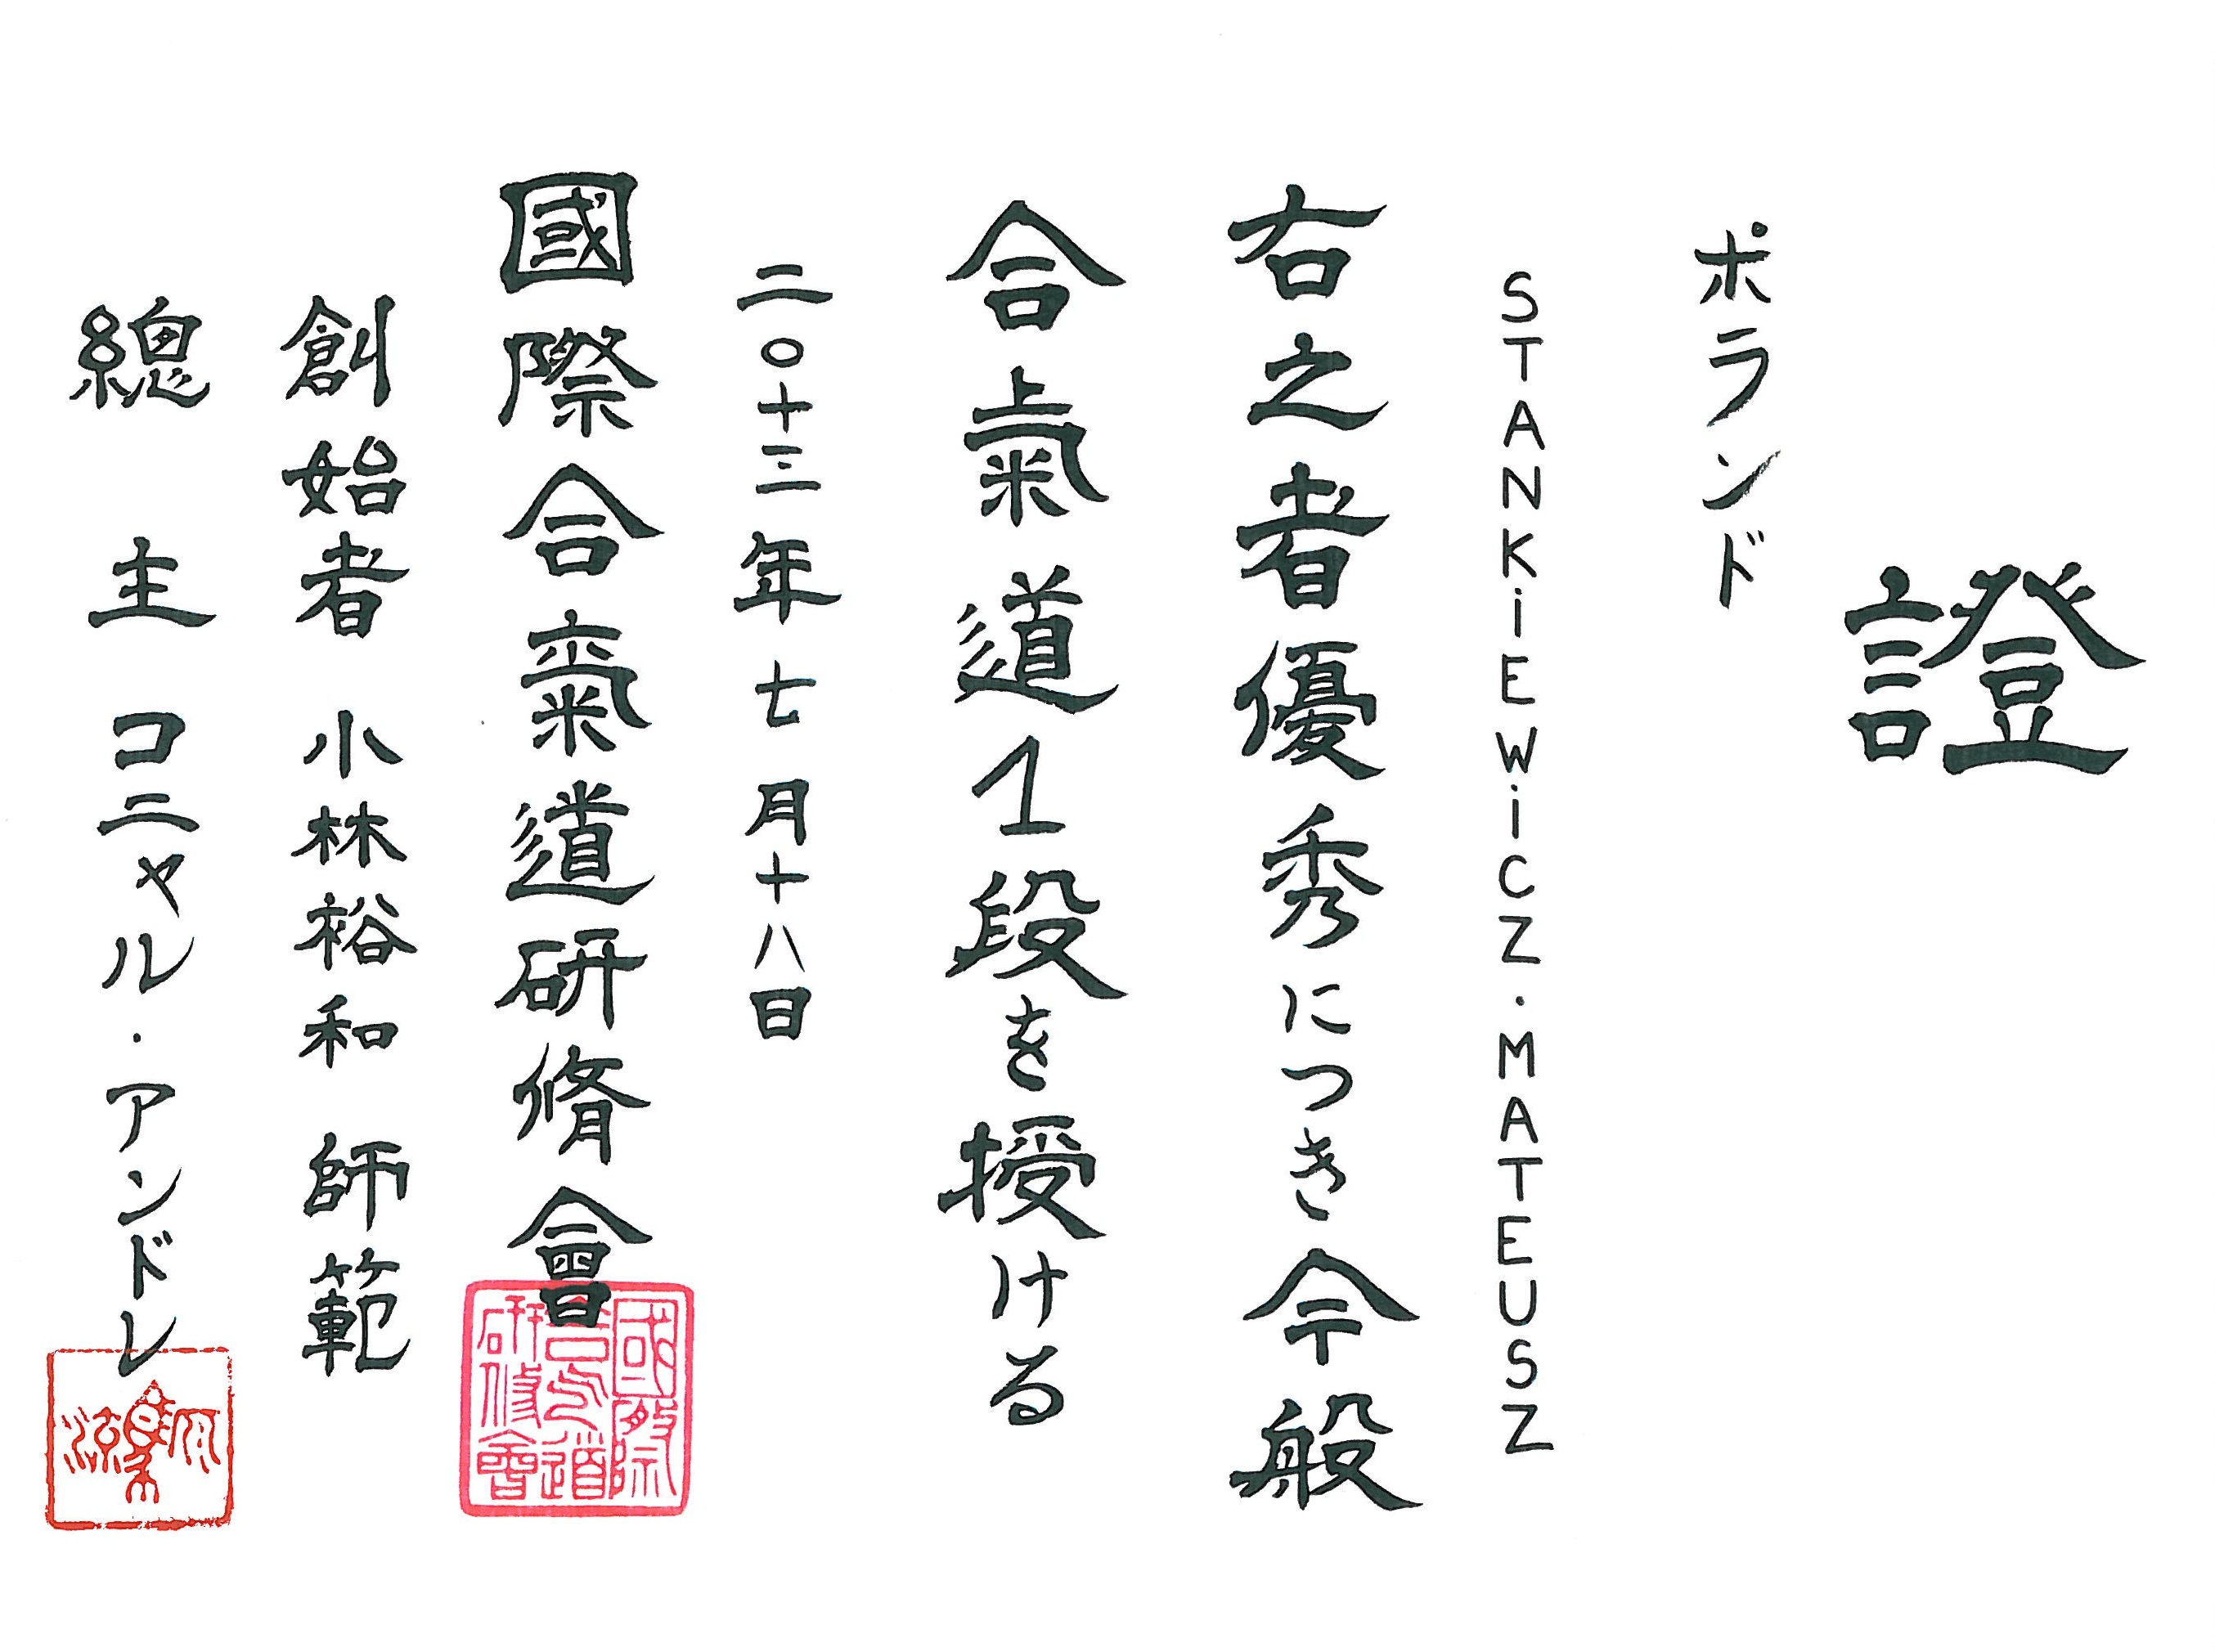 證
ポランド
STANKiEWiCZ・MATEUSZ
右之者優秀につき今般
合氣道1段を授ける
二〇十三年七月十八日
國際合氣道研脩會
創始者 小林裕和 師範
總主 コニャル・アンドレ
國際
合气道
研修會